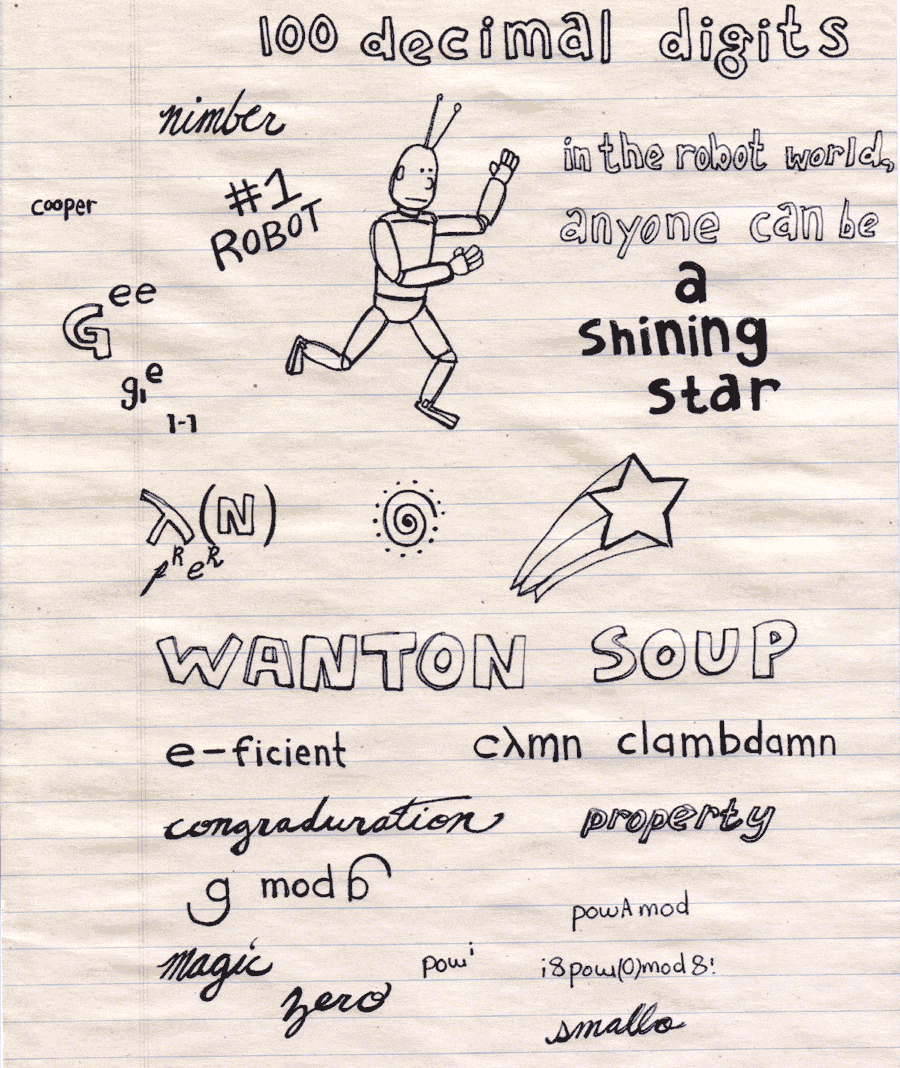 100 decimal digits
nimber
in the robot world,
cooper
#1
ROBOT
anyone can be
a
shining
star
Gee
gie
1-1
λ(N)
pReR
WANTON SOUP
e-ficient
cλmn clambdamn
congraduration
property
g mod 6
powAmod
magic
powi
i8pow(0)mod8!
zero
smallo